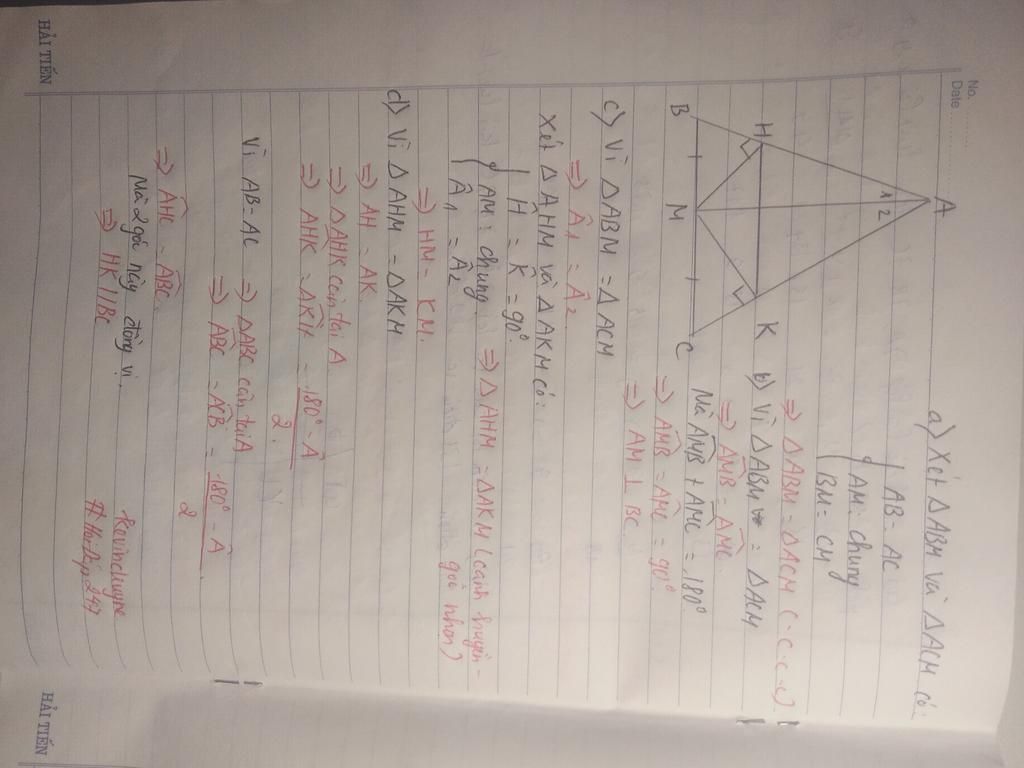 No.
Date
a) Xét ΔABM và ΔACM có:
AB = AC
AM: chung
BM = CM
=> ΔABM = ΔACM (c.c.c)
b) Vì ΔABM = ΔACM
=> AMB = AMC
Mà AMB + AMC = 180°
=> AMB = AMC = 90°
=> AM ⊥ BC
A
1 2
H
K
B
M
C
c) Vì ΔABM = ΔACM
=> Â1 = Â2
Xét ΔAHM và ΔAKM có:
Ĥ = K̂ = 90°
AM: chung
Â1 = Â2
=> ΔAHM = ΔAKM (cạnh huyền -
góc nhọn)
=> HM = KM.
d) Vì ΔAHM = ΔAKM
=> AH = AK
=> ΔAHK cân tại A
=> AHK = AKH = 180° - Â / 2
Vì AB = AC => ΔABC cân tại A
=> ABC = ACB = 180° - Â / 2
=> AHK = ABC
Mà 2 góc này đồng vị
=> HK // BC
HẢI TIẾN
HẢI TIẾN